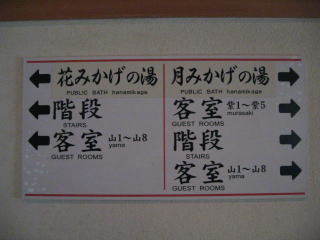 花みかげの湯
PUBLIC BATH hanamikage
階段
STAIRS
客室 山1～山8
yama
GUEST ROOMS
月みかげの湯
PUBLIC BATH hanamikage
客室 紫1～紫5
murasaki
GUEST ROOMS
階段
STAIRS
客室 山1～山8
yama
GUEST ROOMS